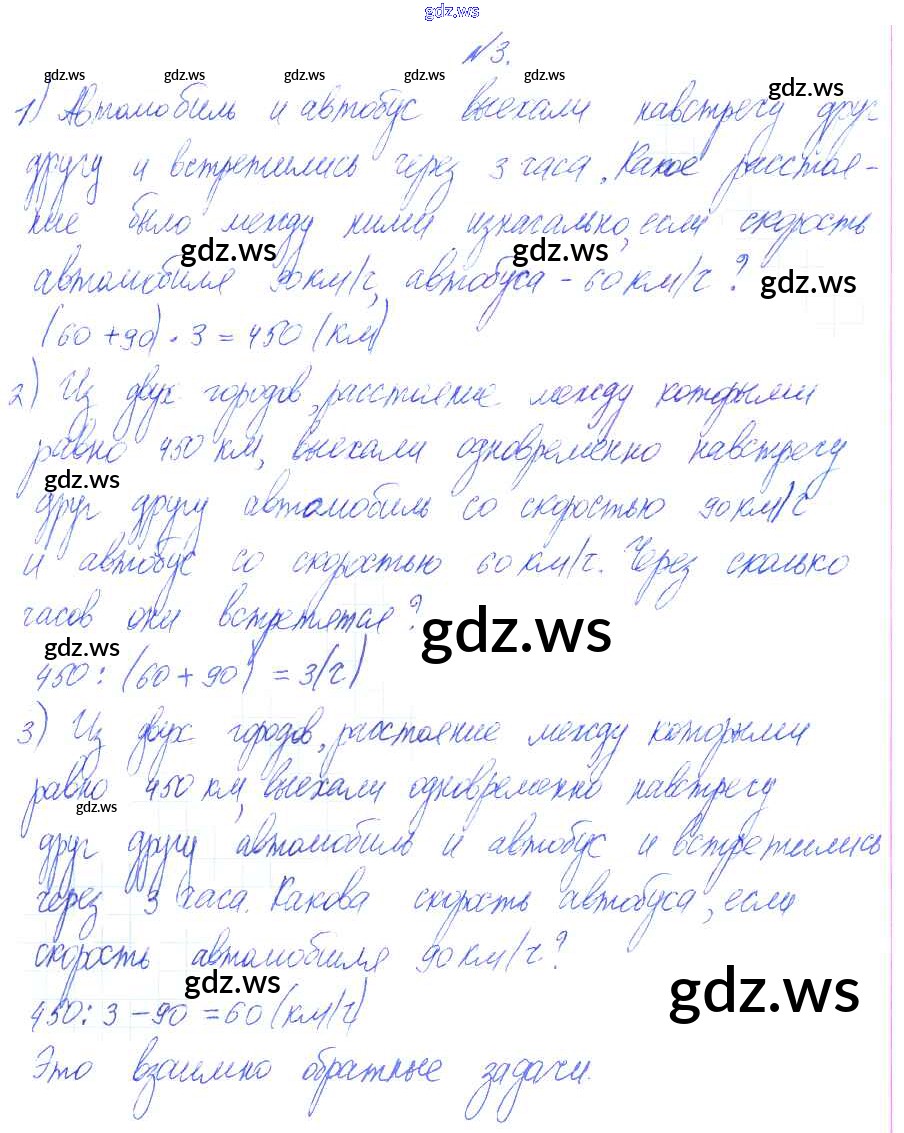 gdz.ws
№3.
gdz.ws gdz.ws gdz.ws gdz.ws gdz.ws
gdz.ws
1) Автомобиль и автобус выехали навстречу друг
другу и встретились через 3 часа. Какое расстоя-
ние было между ними изначально, если скорость
gdz.ws gdz.ws
автомобиля 90 км/ч, автобуса - 60 км/ч?
gdz.ws
(60 + 90) · 3 = 450 (км)
2) Из двух городов, расстояние между которыми
равно 450 км, выехали одновременно навстречу
gdz.ws
друг другу автомобиль со скоростью 90 км/ч
и автобус со скоростью 60 км/ч. Через сколько
часов они встретятся?
gdz.ws
gdz.ws
450 : (60 + 90) = 3 (ч)
3) Из двух городов, расстояние между которыми
равно 450 км, выехали одновременно навстречу
gdz.ws
друг другу автомобиль и автобус и встретились
через 3 часа. Какова скорость автобуса, если
скорость автомобиля 90 км/ч?
gdz.ws
gdz.ws
450 : 3 - 90 = 60 (км/ч)
Это взаимно обратные задачи.